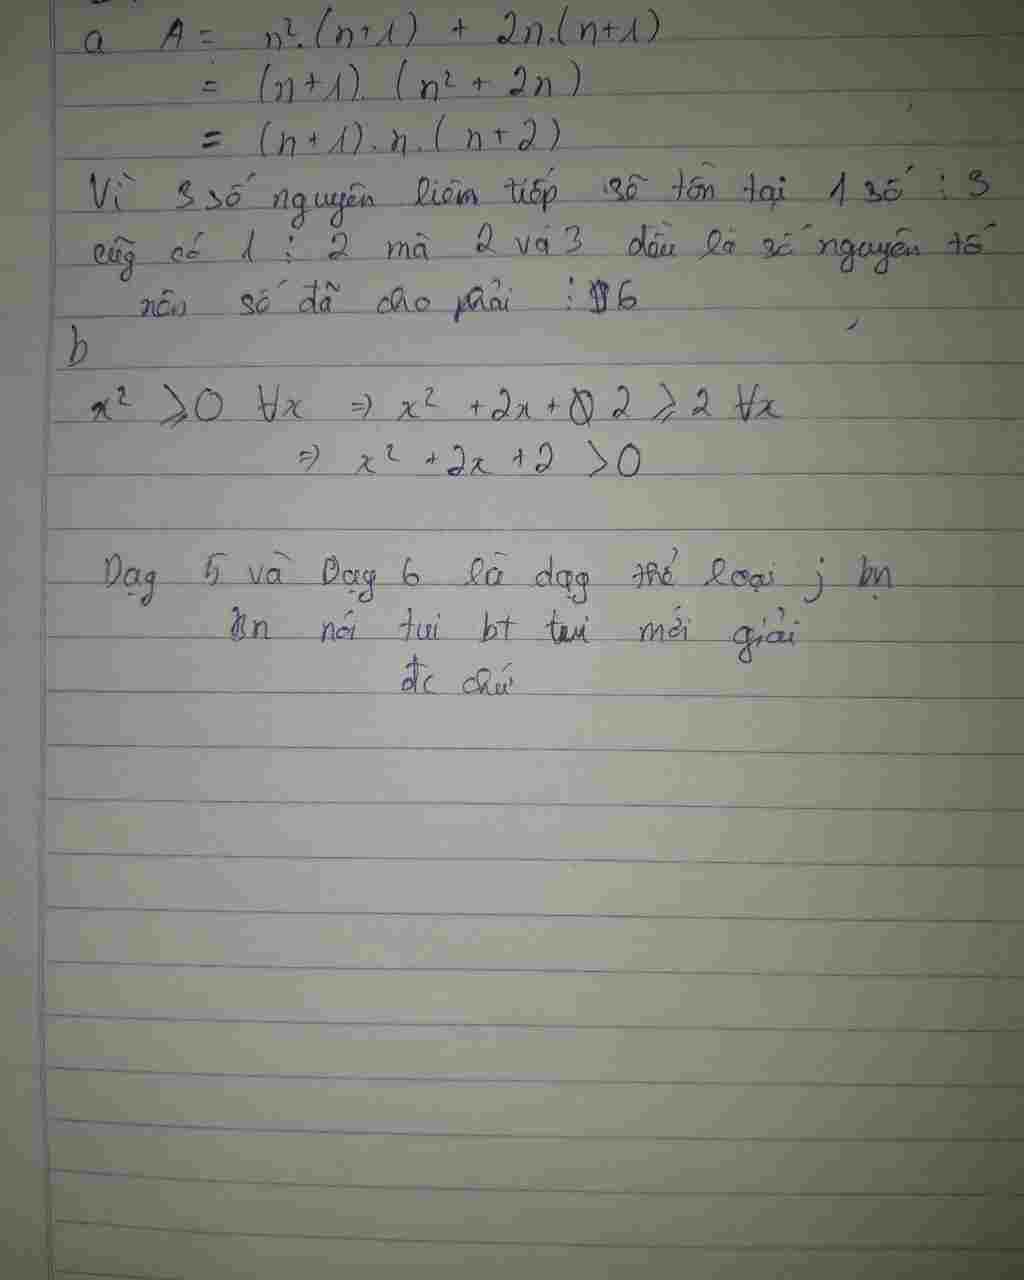 a A = n².(n+1) + 2n.(n+1)
= (n+1).(n² + 2n)
= (n+1).n.(n+2)
Vì 3 số nguyên liêm tiếp sẽ tồn tại 1 số ⋮ 3
cũg có 1 ⋮ 2 mà 2 và 3 đều là số nguyên tố
nên số đã cho phải ⋮ 6
b
x² ⩾ 0 ∀x ⇒ x² + 2x + 2 ⩾ 2 ∀x
⇒ x² + 2x + 2 > 0
Dạg 5 và Dạg 6 là dạg thể loại j bn
bn nói tui bt tui mới giải
đc chứ